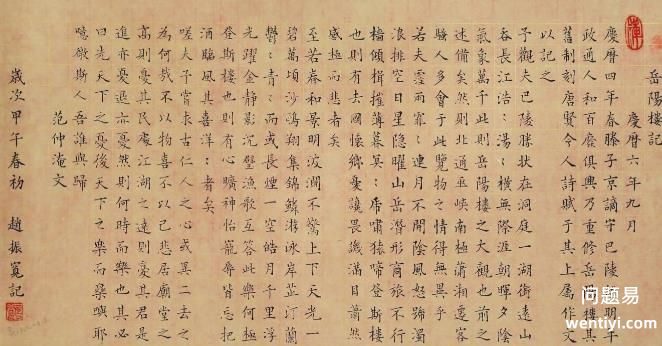 岳陽樓記
慶曆六年九月
慶曆四年春滕子京謫守巴陵明年
政通人和百廢俱興乃重修岳陽樓
舊制刻唐賢今人詩賦于其上屬作文
以記之
予觀夫巴陵勝狀在洞庭一湖銜遠山
吞長江浩：湯：橫無際涯朝暉夕陰
氣象萬千此則岳陽樓之大觀也前之
述備矣然則北通巫峽南極瀟湘遷客
騷人多會于此覽物之情得無異乎
若夫霪雨霏：連月不開陰風怒號濁
浪排空日星隱曜山岳潛形商旅不行
檣傾楫摧薄暮冥：虎嘯猿啼登斯樓
也則有去國懷鄉憂讒畏譏滿目蕭然
感極而悲者矣
至若春和景明波瀾不驚上下天光一
碧萬頃沙鷗翔集錦鱗游泳岸芷汀蘭
鬱：青：而或長煙一空皓月千里浮
光耀金靜影沉璧漁歌互答此樂何極
登斯樓也則有心曠神怡寵辱皆忘把
酒臨風其喜洋：者矣
嗟夫予嘗求古仁人之心或異二者之
為何哉不以物喜不以己悲居廟堂之
高則憂其民處江湖之遠則憂其君是
進亦憂退亦憂然則何時而樂也其必
曰先天下之憂後天下之樂而樂歟耶
噫微斯人吾誰與歸
范仲淹文
歲次甲午春初 趙振寬記
问题易
wentiyi.com